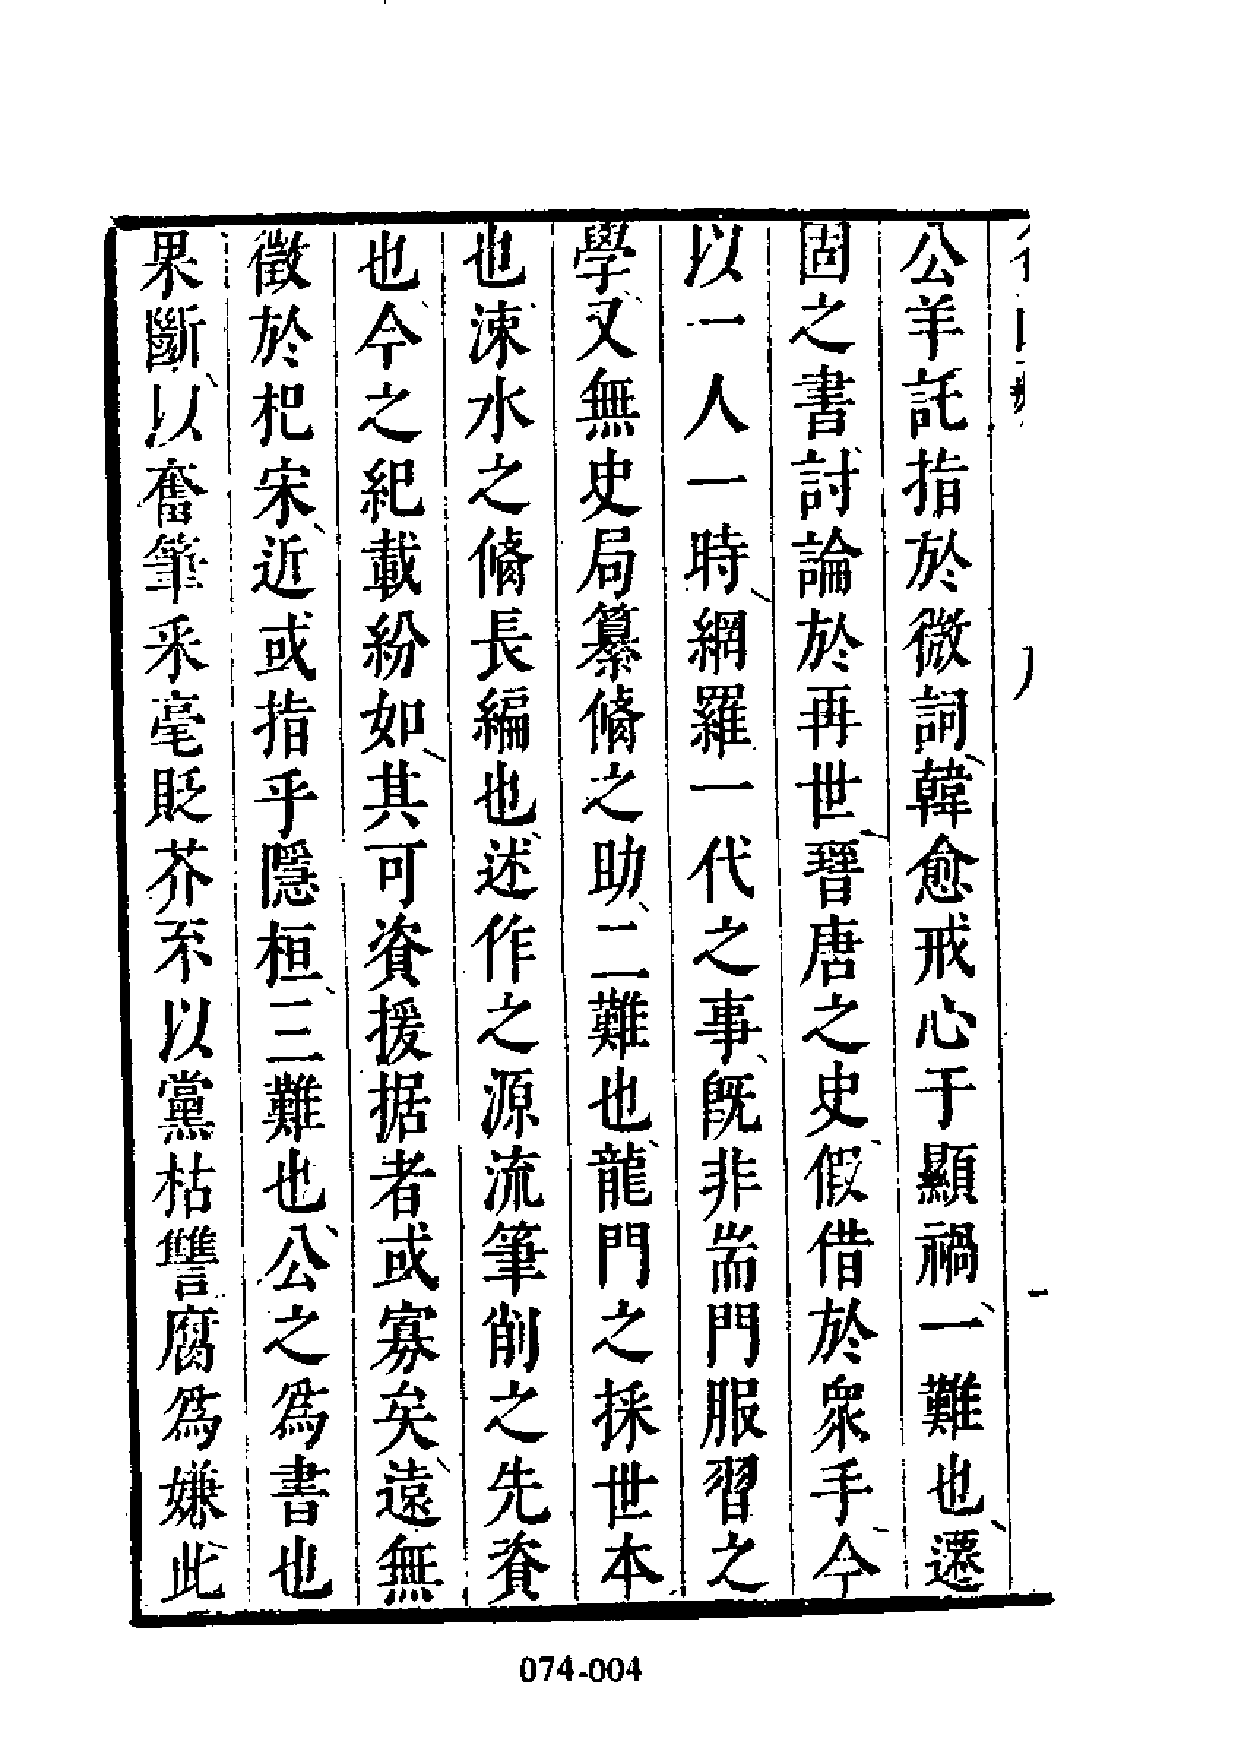 公羊託指於微詞韓愈戒心于顯禍一難也遷
固之書討論於再世晉唐之史假借於衆手今
以一人一時網羅一代之事旣非耑門服習之
學又無史局纂脩之助二難也龍門之採世本
也涑水之脩長編也述作之源流筆削之先資
也今之紀載紛如其可資援据者或寡矣遠無
徵於杞宋近或指乎隱桓三難也公之爲書也
果斷以奮筆釆毫貶芥不以黨枯讐腐爲嫌此
074-004